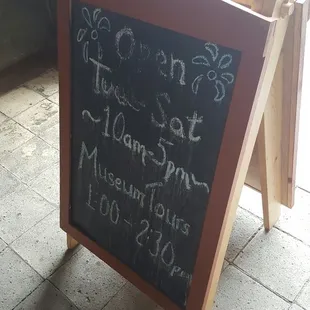 Open
Tues - Sat
~10am-5pm~
Museum Tours
1:00 - 2:30pm